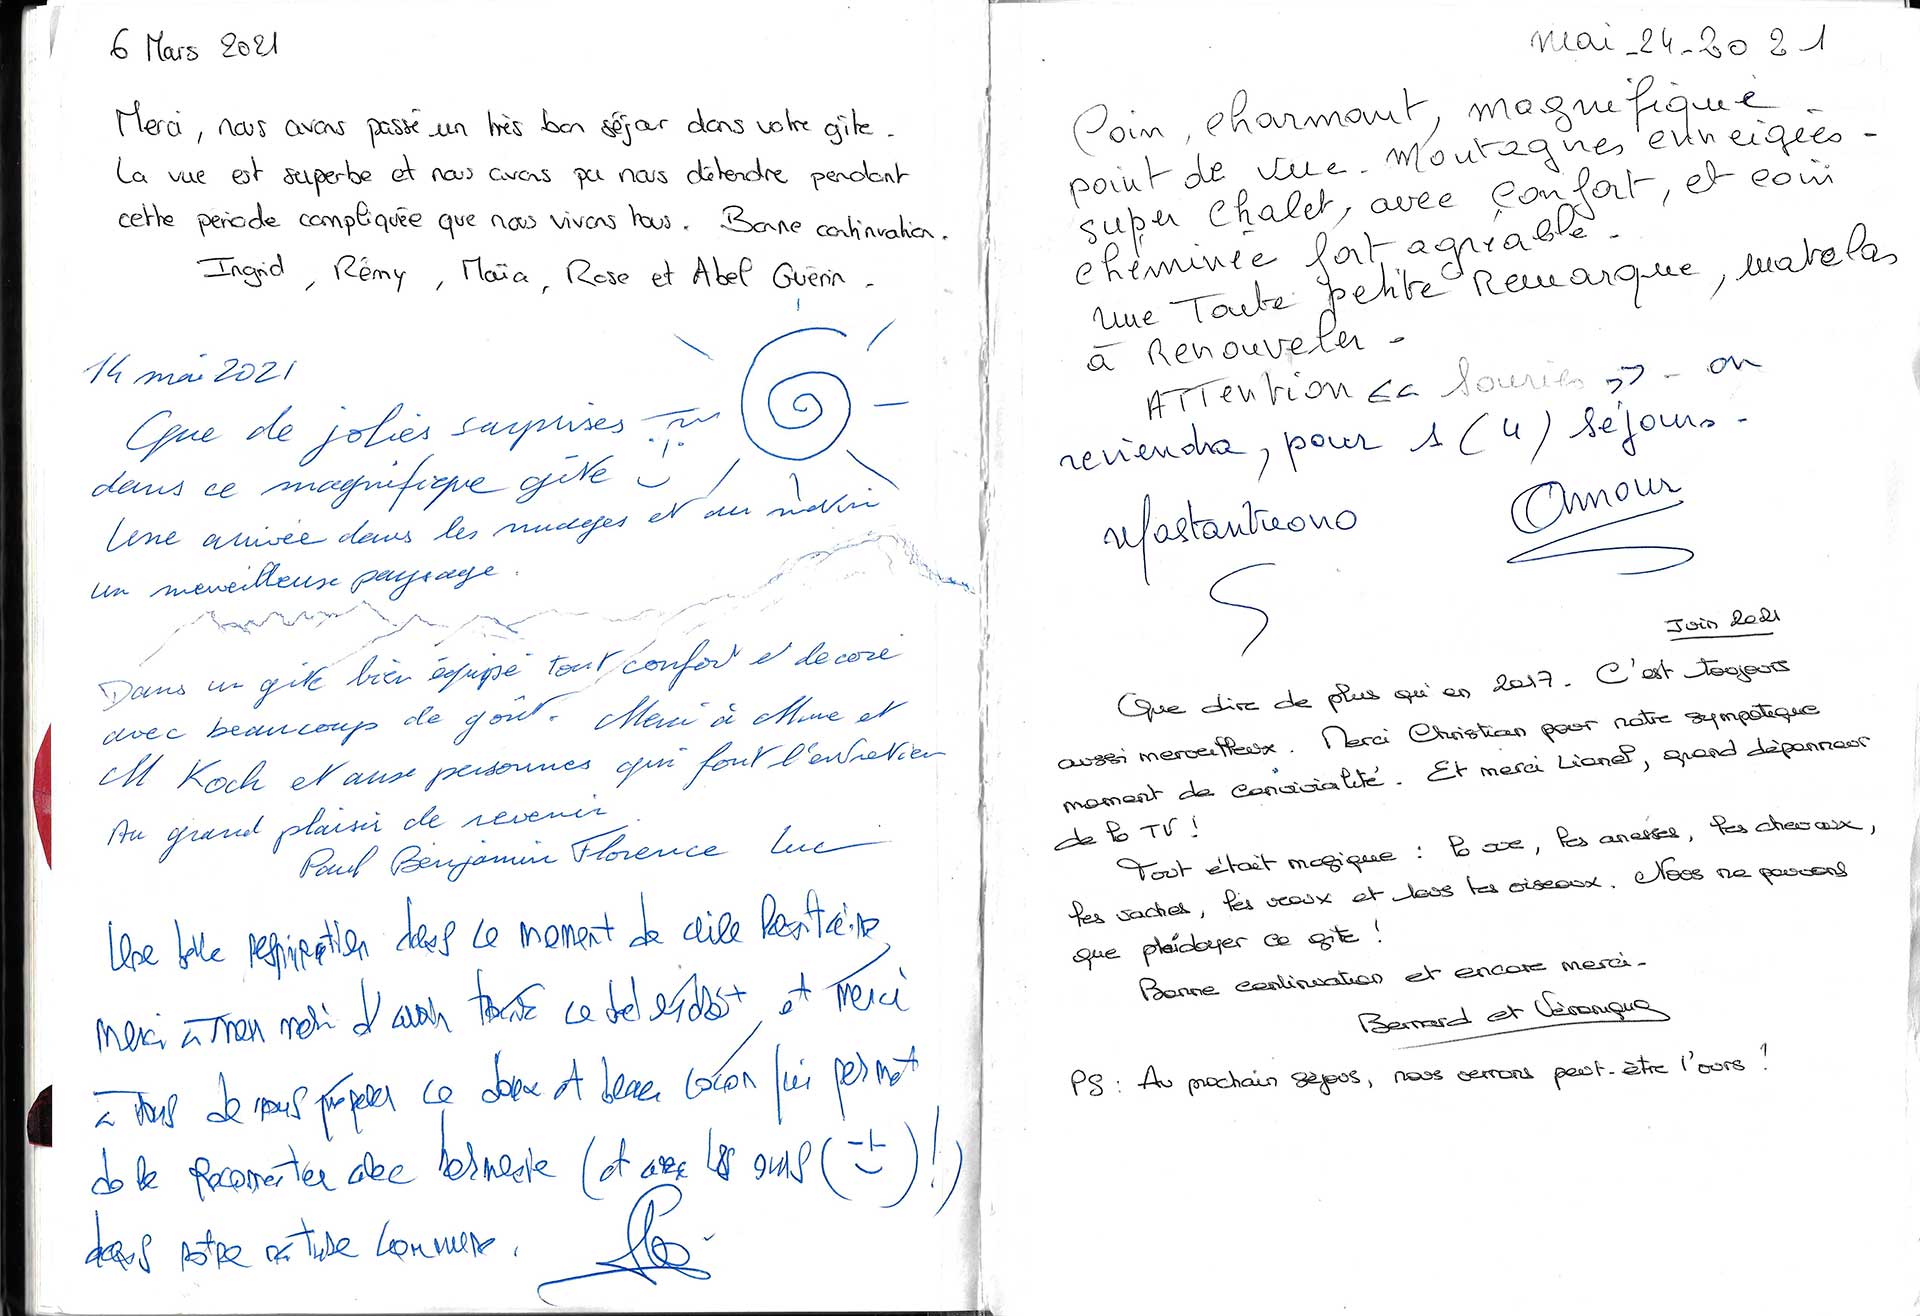 6 Mars 2021
Merci, nous avons passé un très bon séjour dans votre gîte.
La vue est superbe et nous avons pu nous détendre pendant
cette période compliquée que nous vivons tous. Bonne continuation.
Ingrid, Rémy, Maïa, Rose et Abel Guérin.
14 mai 2021
Que de jolies surprises
dans ce magnifique gîte
Une arrivée dans les nuages et au matin
un merveilleux paysage.
Dans un gîte bien équipé tout confort et décoré
avec beaucoup de goût. Merci à Mme et
M Koch et aux personnes qui font l'entretien
Au grand plaisir de revenir.
Paul Benjamin Florence Luc
Une belle respiration dans ce moment de crise sanitaire
merci à mon mari d'avoir trouvé ce bel endroit et merci
à vous de nous préparer ce doux et beau cocon qui permet
de se reconnecter avec
dans notre nature commune.
mai-24-2021
Coin, charmant, magnifique
point de vue. Montagnes enneigées-
super chalet, avec confort, et coin
cheminée fort agréable.
une Toute petite Remarque, matelas
à Renouveler-
ATTention << Souris >> - on
reviendra, pour 1 (4) séjours-
Mastantuono
Amour
Juin 2021
Que dire de plus qu'en 2017. C'est toujours
aussi merveilleux. Merci Christian pour notre sympatique
moment de convivialité. Et merci Lionel, grand dépanneur
de la TV!
Tout était magique : la vue, les anesses, les chevaux,
les vaches, les veaux et tous les oiseaux. Nous ne pouvons
que plaidoyer ce gîte!
Bonne continuation et encore merci-
Bernard et Véronique
PS: Au prochain séjour, nous verrons peut-être l'ours!